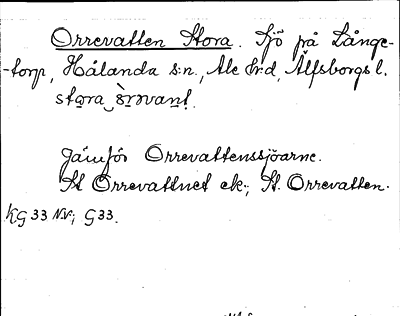 Orrevatten Stora. Sjö på Långe-
-torp, Hålanda s:n, Ale h:d, Älfsborgs l.
stọra ò̱rəvant.
Jämför Orrevattenssjöarne.
St Orrevattnet ek.; St. Orrevatten.
KG 33 NV; G 33.